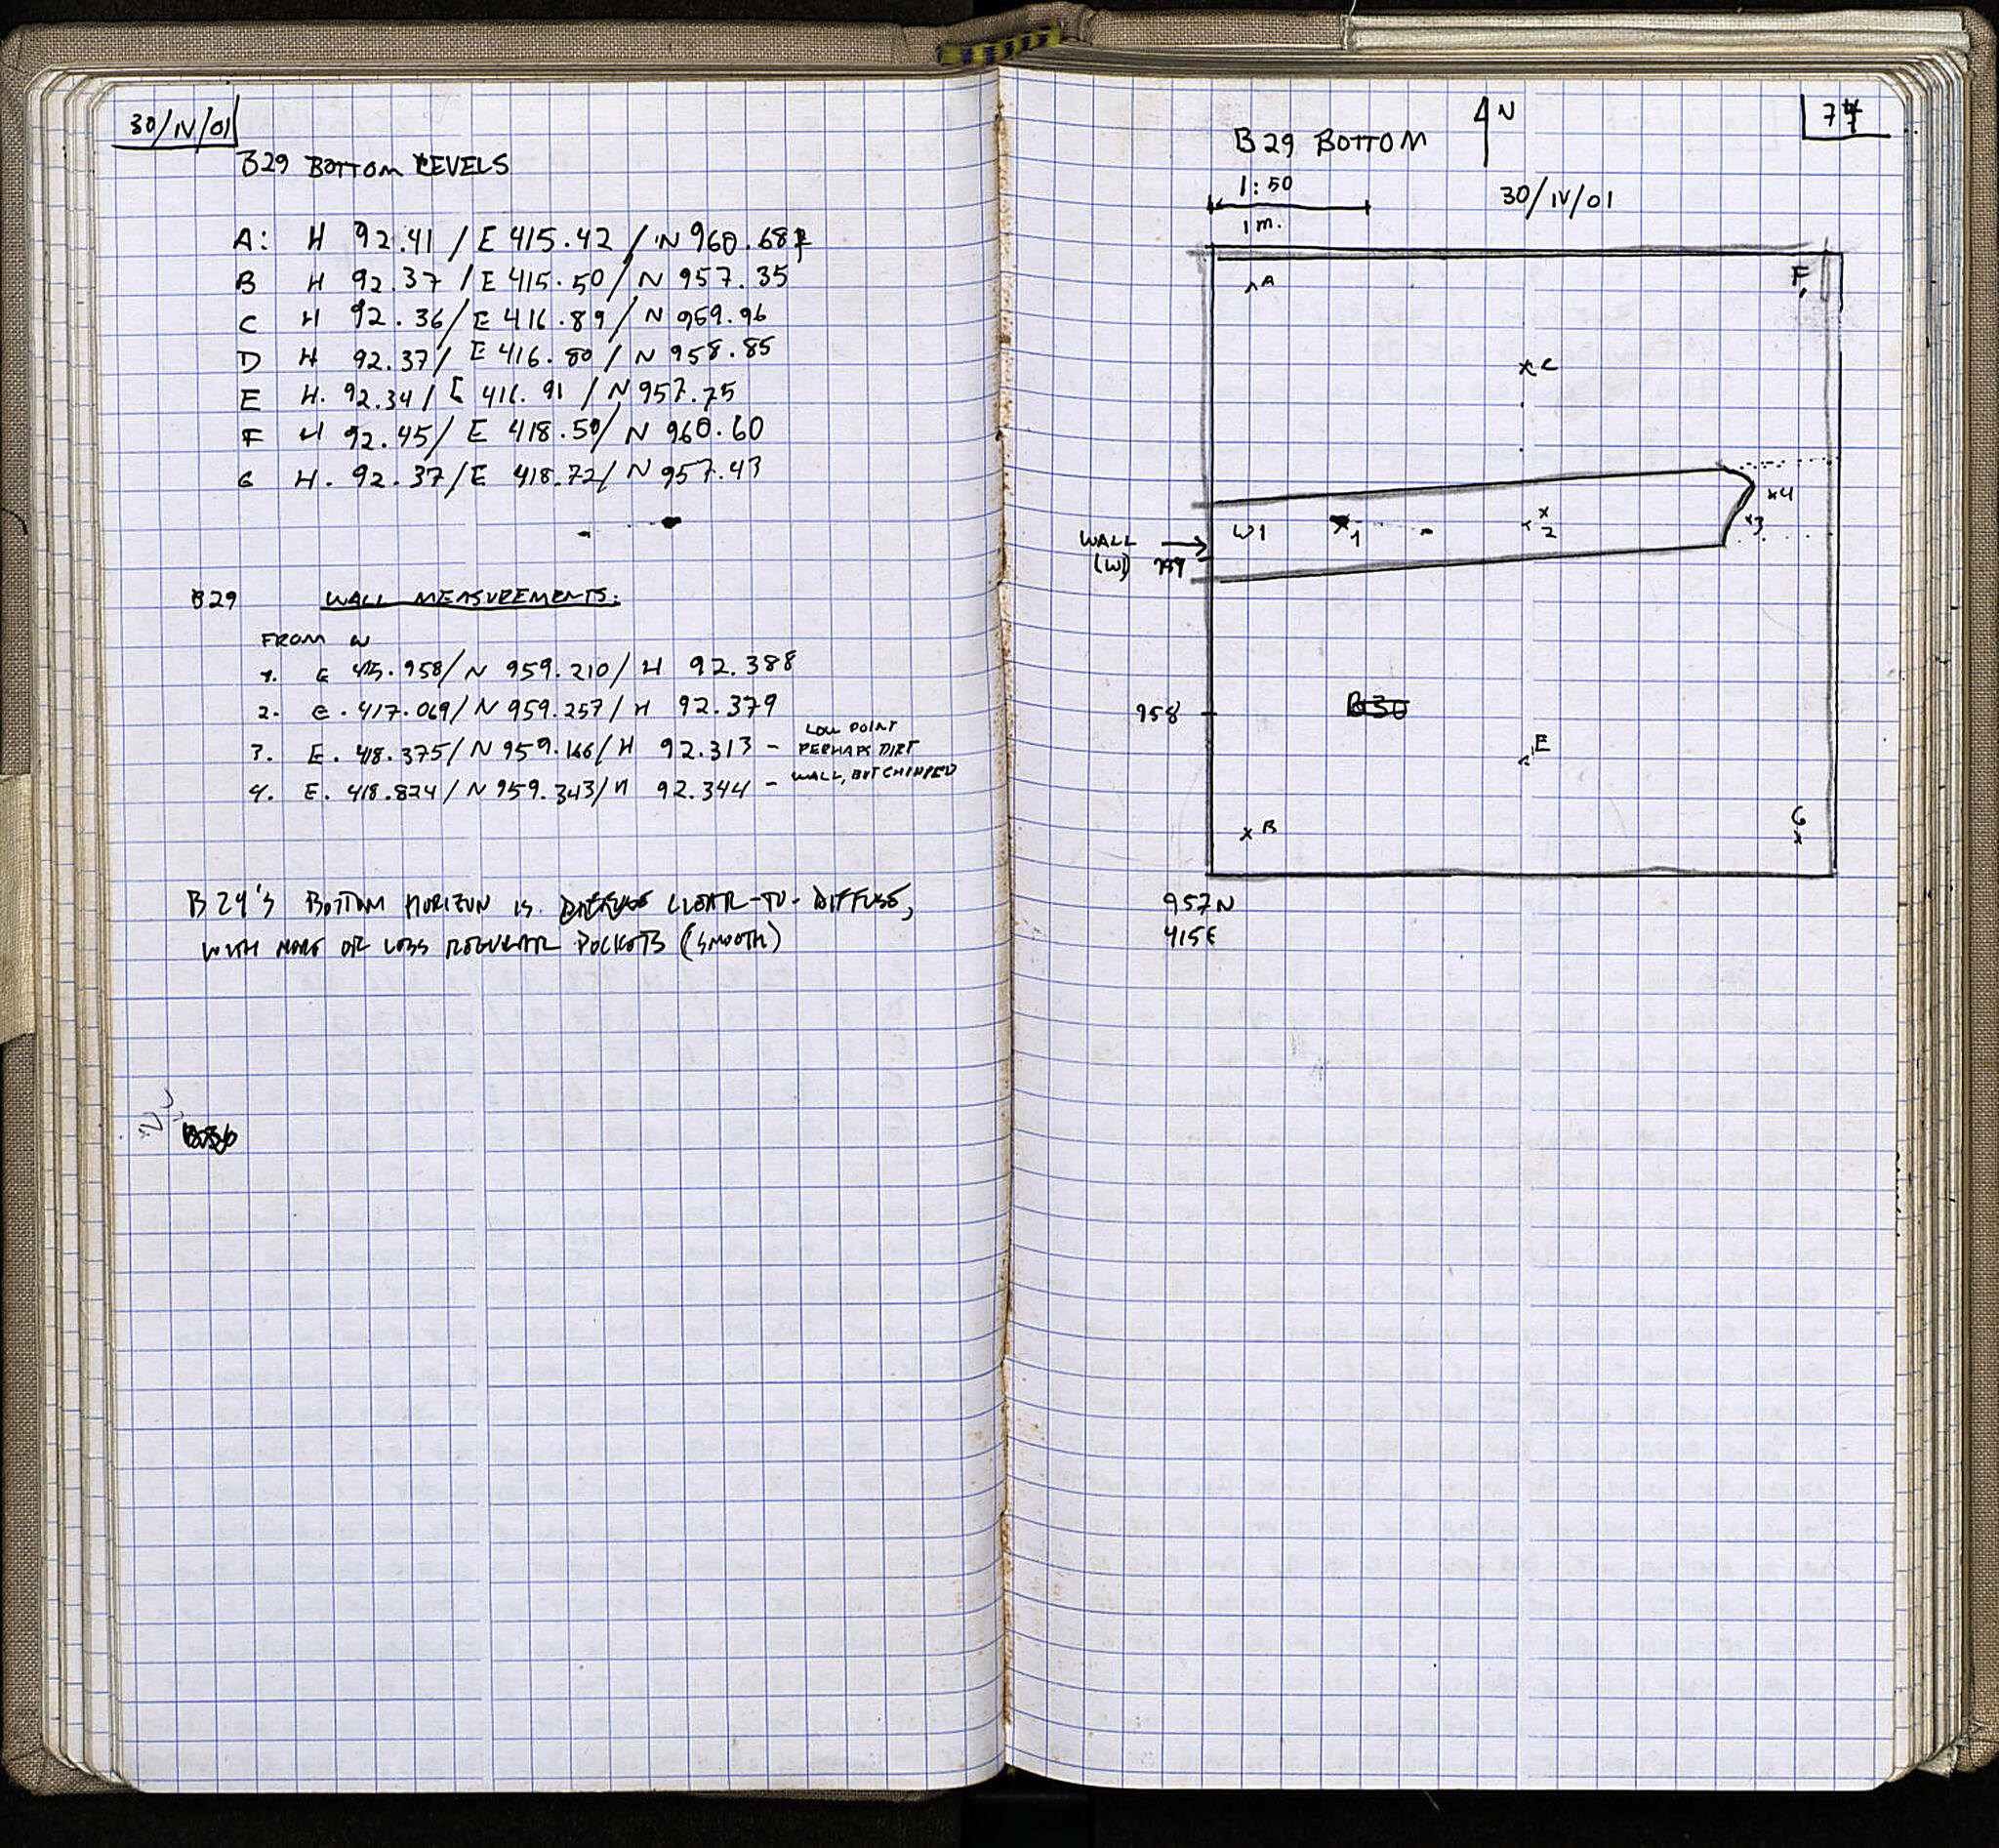 30/IV/01
B29 BOTTOM LEVELS
A: H 92.41 / E 415.42 / N 960.68
B H 92.37 / E 415.50 / N 957.35
C H 92.36 / E 416.89 / N 959.96
D H 92.37 / E 416.80 / N 958.85
E H. 92.34 / E 416.91 / N 957.75
F H 92.45 / E 418.50 / N 960.60
G H. 92.37 / E 418.72 / N 957.43
B29 WALL MEASUREMENTS:
FROM W
1. E 415.958 / N 959.210 / H 92.388
2. E. 417.069 / N 959.257 / H 92.379
3. E. 418.375 / N 959.166 / H 92.313 - LOW POINT PERHAPS DIRT
4. E. 418.824 / N 959.343 / H 92.344 - WALL, BUT CHIPPED
B29'S BOTTOM HORIZON IS CLEAR-TO-DIFFUSE,
WITH MORE OR LESS REGULAR POCKETS (SMOOTH)
B29 BOTTOM
N
1:50
1 m.
30/IV/01
A
F
C
x4
W1
x1
x2
x3
WALL
(W)
959
958
B30
E
B
G
957N
415E